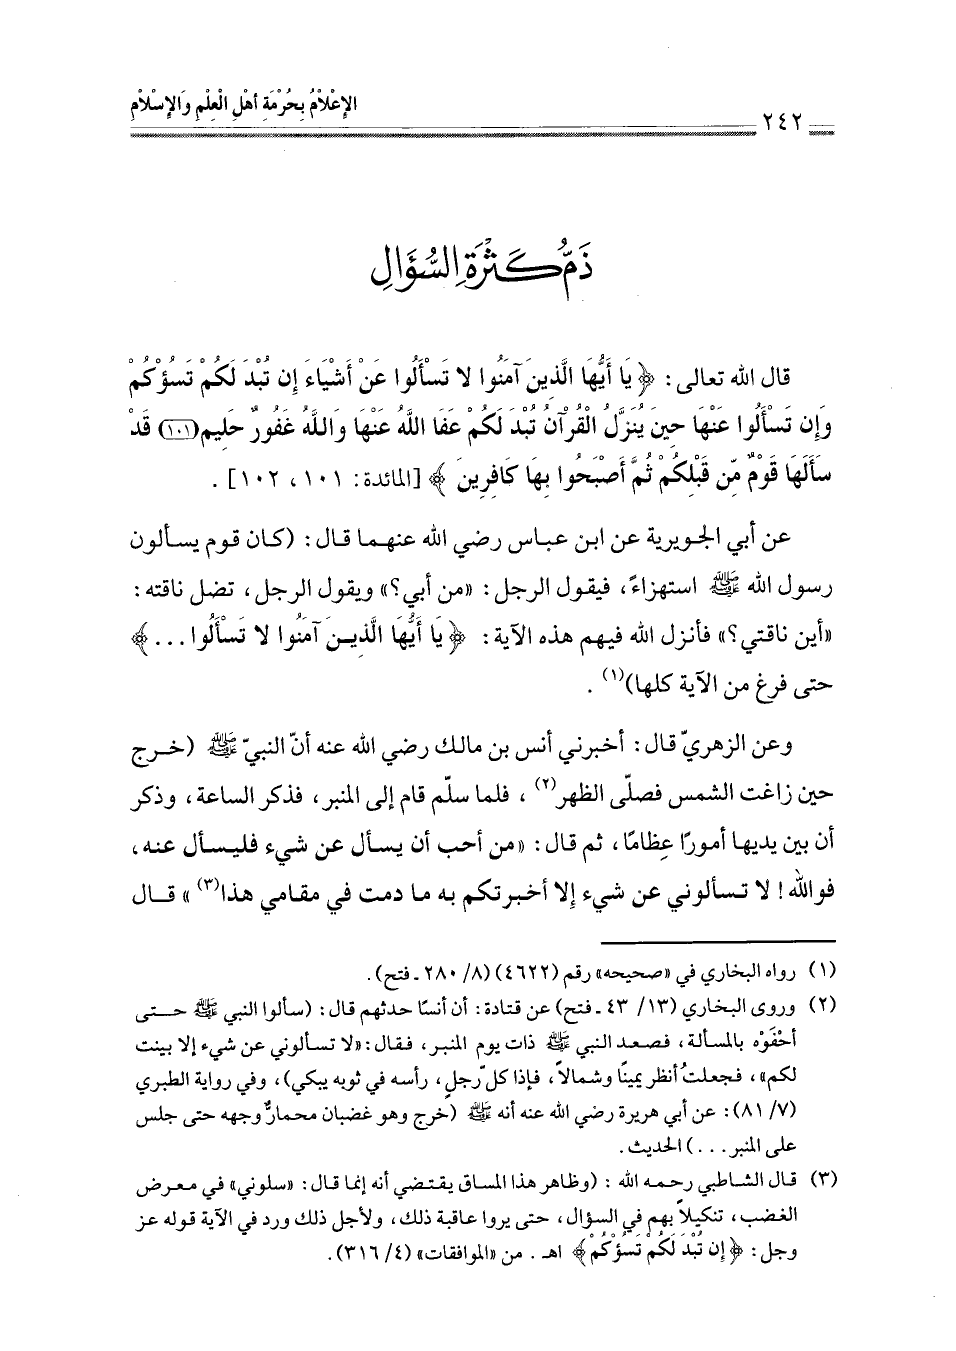 الإِعْلاَمُ بِحُرْمَةِ أَهْلِ الْعِلْمِ وَالإِسْلاَمِ
٢٤٢
ذَمُّ كَثْرَةِ السُّؤَالِ
قال الله تعالى: ﴿يَا أَيُّهَا الَّذِينَ آمَنُوا لا تَسْأَلُوا عَنْ أَشْيَاءَ إِن تُبْدَ لَكُمْ تَسُؤْكُمْ
وَإِن تَسْأَلُوا عَنْهَا حِينَ يُنَزَّلُ الْقُرْآنُ تُبْدَ لَكُمْ عَفَا اللَّهُ عَنْهَا وَاللَّهُ غَفُورٌ حَلِيم(١٠١) قَدْ
سَأَلَهَا قَوْمٌ مِّن قَبْلِكُمْ ثُمَّ أَصْبَحُوا بِهَا كَافِرِينَ﴾ [المائدة: ١٠١، ١٠٢].
عن أبي الجويرية عن ابن عباس رضي الله عنهما قال: (كان قوم يسألون
رسول الله ﷺ استهزاءً، فيقول الرجل: «من أبي؟» ويقول الرجل، تضل ناقته:
«أين ناقتي؟» فأنزل الله فيهم هذه الآية: ﴿يَا أَيُّهَا الَّذِينَ آمَنُوا لا تَسْأَلُوا ...﴾
حتى فرغ من الآية كلها)(١).
وعن الزهريّ قال: أخبرني أنس بن مالك رضي الله عنه أنّ النبيّ ﷺ (خرج
حين زاغت الشمس فصلّى الظهر(٢)، فلما سلّم قام إلى المنبر، فذكر الساعة، وذكر
أن بين يديها أمورًا عِظامًا، ثم قال: «من أحب أن يسأل عن شيء فليسأل عنه،
فوالله! لا تسألوني عن شيء إلا أخبرتكم به ما دمت في مقامي هذا(٣)» قال
(١) رواه البخاري في «صحيحه» رقم (٤٦٢٢) (٨/ ٢٨٠ ـ فتح).
(٢) وروى البخاري (١٣/ ٤٣ ـ فتح) عن قتادة: أن أنسًا حدثهم قال: (سألوا النبي ﷺ حتى
أحْفَوْه بالمسألة، فصعد النبي ﷺ ذات يوم المنبر، فقال: «لا تسألوني عن شيء إلا بينت
لكم»، فجعلتُ أنظر يمينًا وشمالاً، فإذا كلّ رجلٍ، رأسه في ثوبه يبكي)، وفي رواية الطبري
(٧/ ٨١): عن أبي هريرة رضي الله عنه أنه ﷺ (خرج وهو غضبان محمارٌّ وجهه حتى جلس
على المنبر...) الحديث.
(٣) قال الشاطبي رحمه الله: (وظاهر هذا المساق يقتضي أنه إنما قال: «سلوني» في معرض
الغضب، تنكيلاً بهم في السؤال، حتى يروا عاقبة ذلك، ولأجل ذلك ورد في الآية قوله عز
وجل: ﴿إِن تُبْدَ لَكُمْ تَسُؤْكُمْ﴾ اهـ. من «الموافقات» (٤/ ٣١٦).